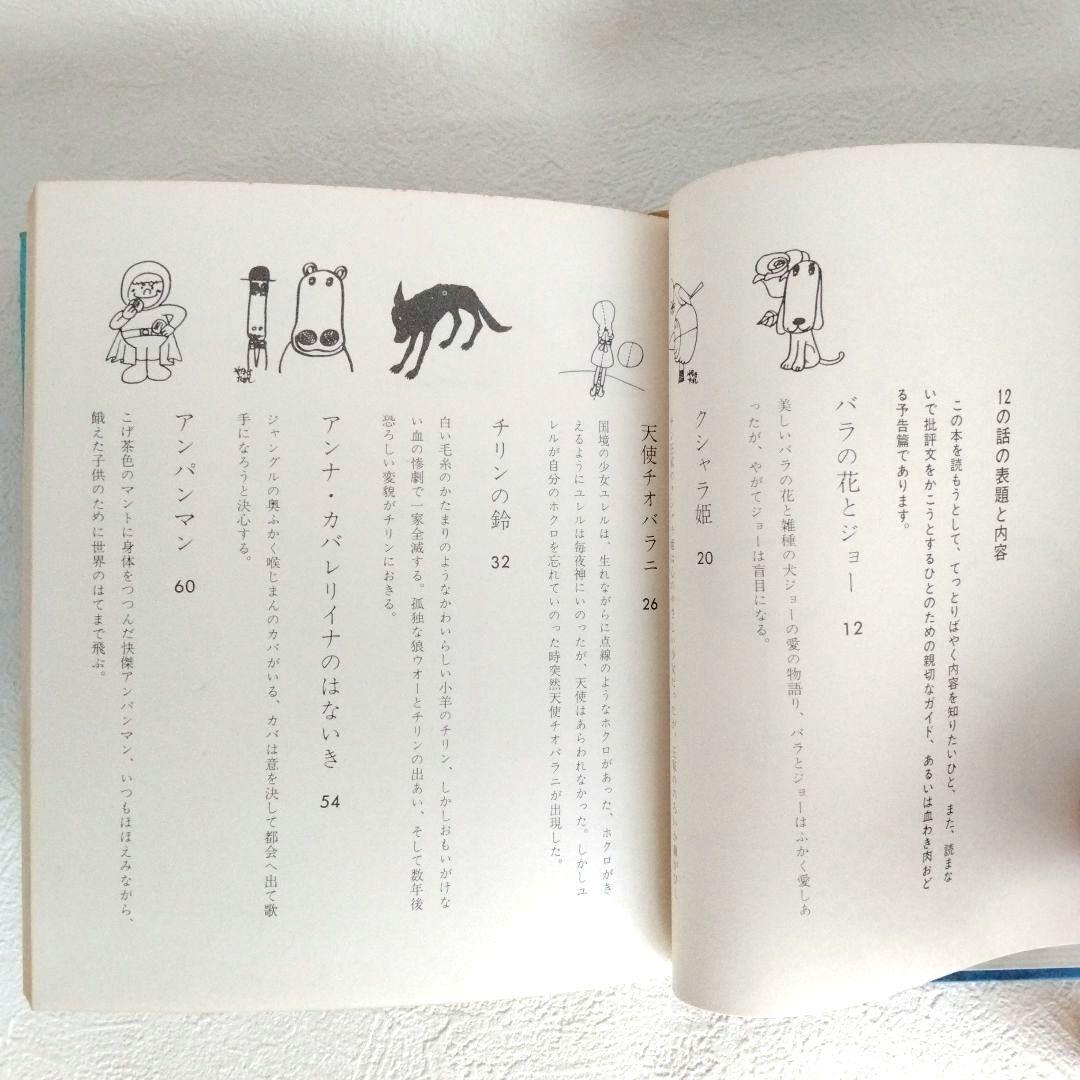 12の話の表題と内容
この本を読もうとして、てっとりばやく内容を知りたいひと、また、読まな
いで批評文をかこうとするひとのための親切なガイド、あるいは血わき肉おど
る予告篇であります。
バラの花とジョー 12
美しいバラの花と雑種の犬ジョーの愛の物語り、バラとジョーはふかく愛しあ
ったが、やがてジョーは盲目になる。
クシャラ姫 20
天使チオバラニ 26
国境の少女ユレルは、生れながらに点線のようなホクロがあった、ホクロがき
えるようにユレルは毎夜神にいのったが、天使はあらわれなかった。しかしユ
レルが自分のホクロを忘れていのった時突然天使チオバラニが出現した。
チリンの鈴 32
白い毛糸のかたまりのようなかわいらしい小羊のチリン、しかしおもいがけな
い血の惨劇で一家全滅する。孤独な狼ウオーとチリンの出あい、そして数年後
恐ろしい変貌がチリンにおきる。
アンナ・カバレリイナのはないき 54
ジャングルの奥ふかく喉じまんのカバがいる、カバは意を決して都会へ出て歌
手になろうと決心する。
アンパンマン 60
こげ茶色のマントに身体をつつんだ快傑アンパンマン、いつもほほえみながら、
餓えた子供のために世界のはてまで飛ぶ。